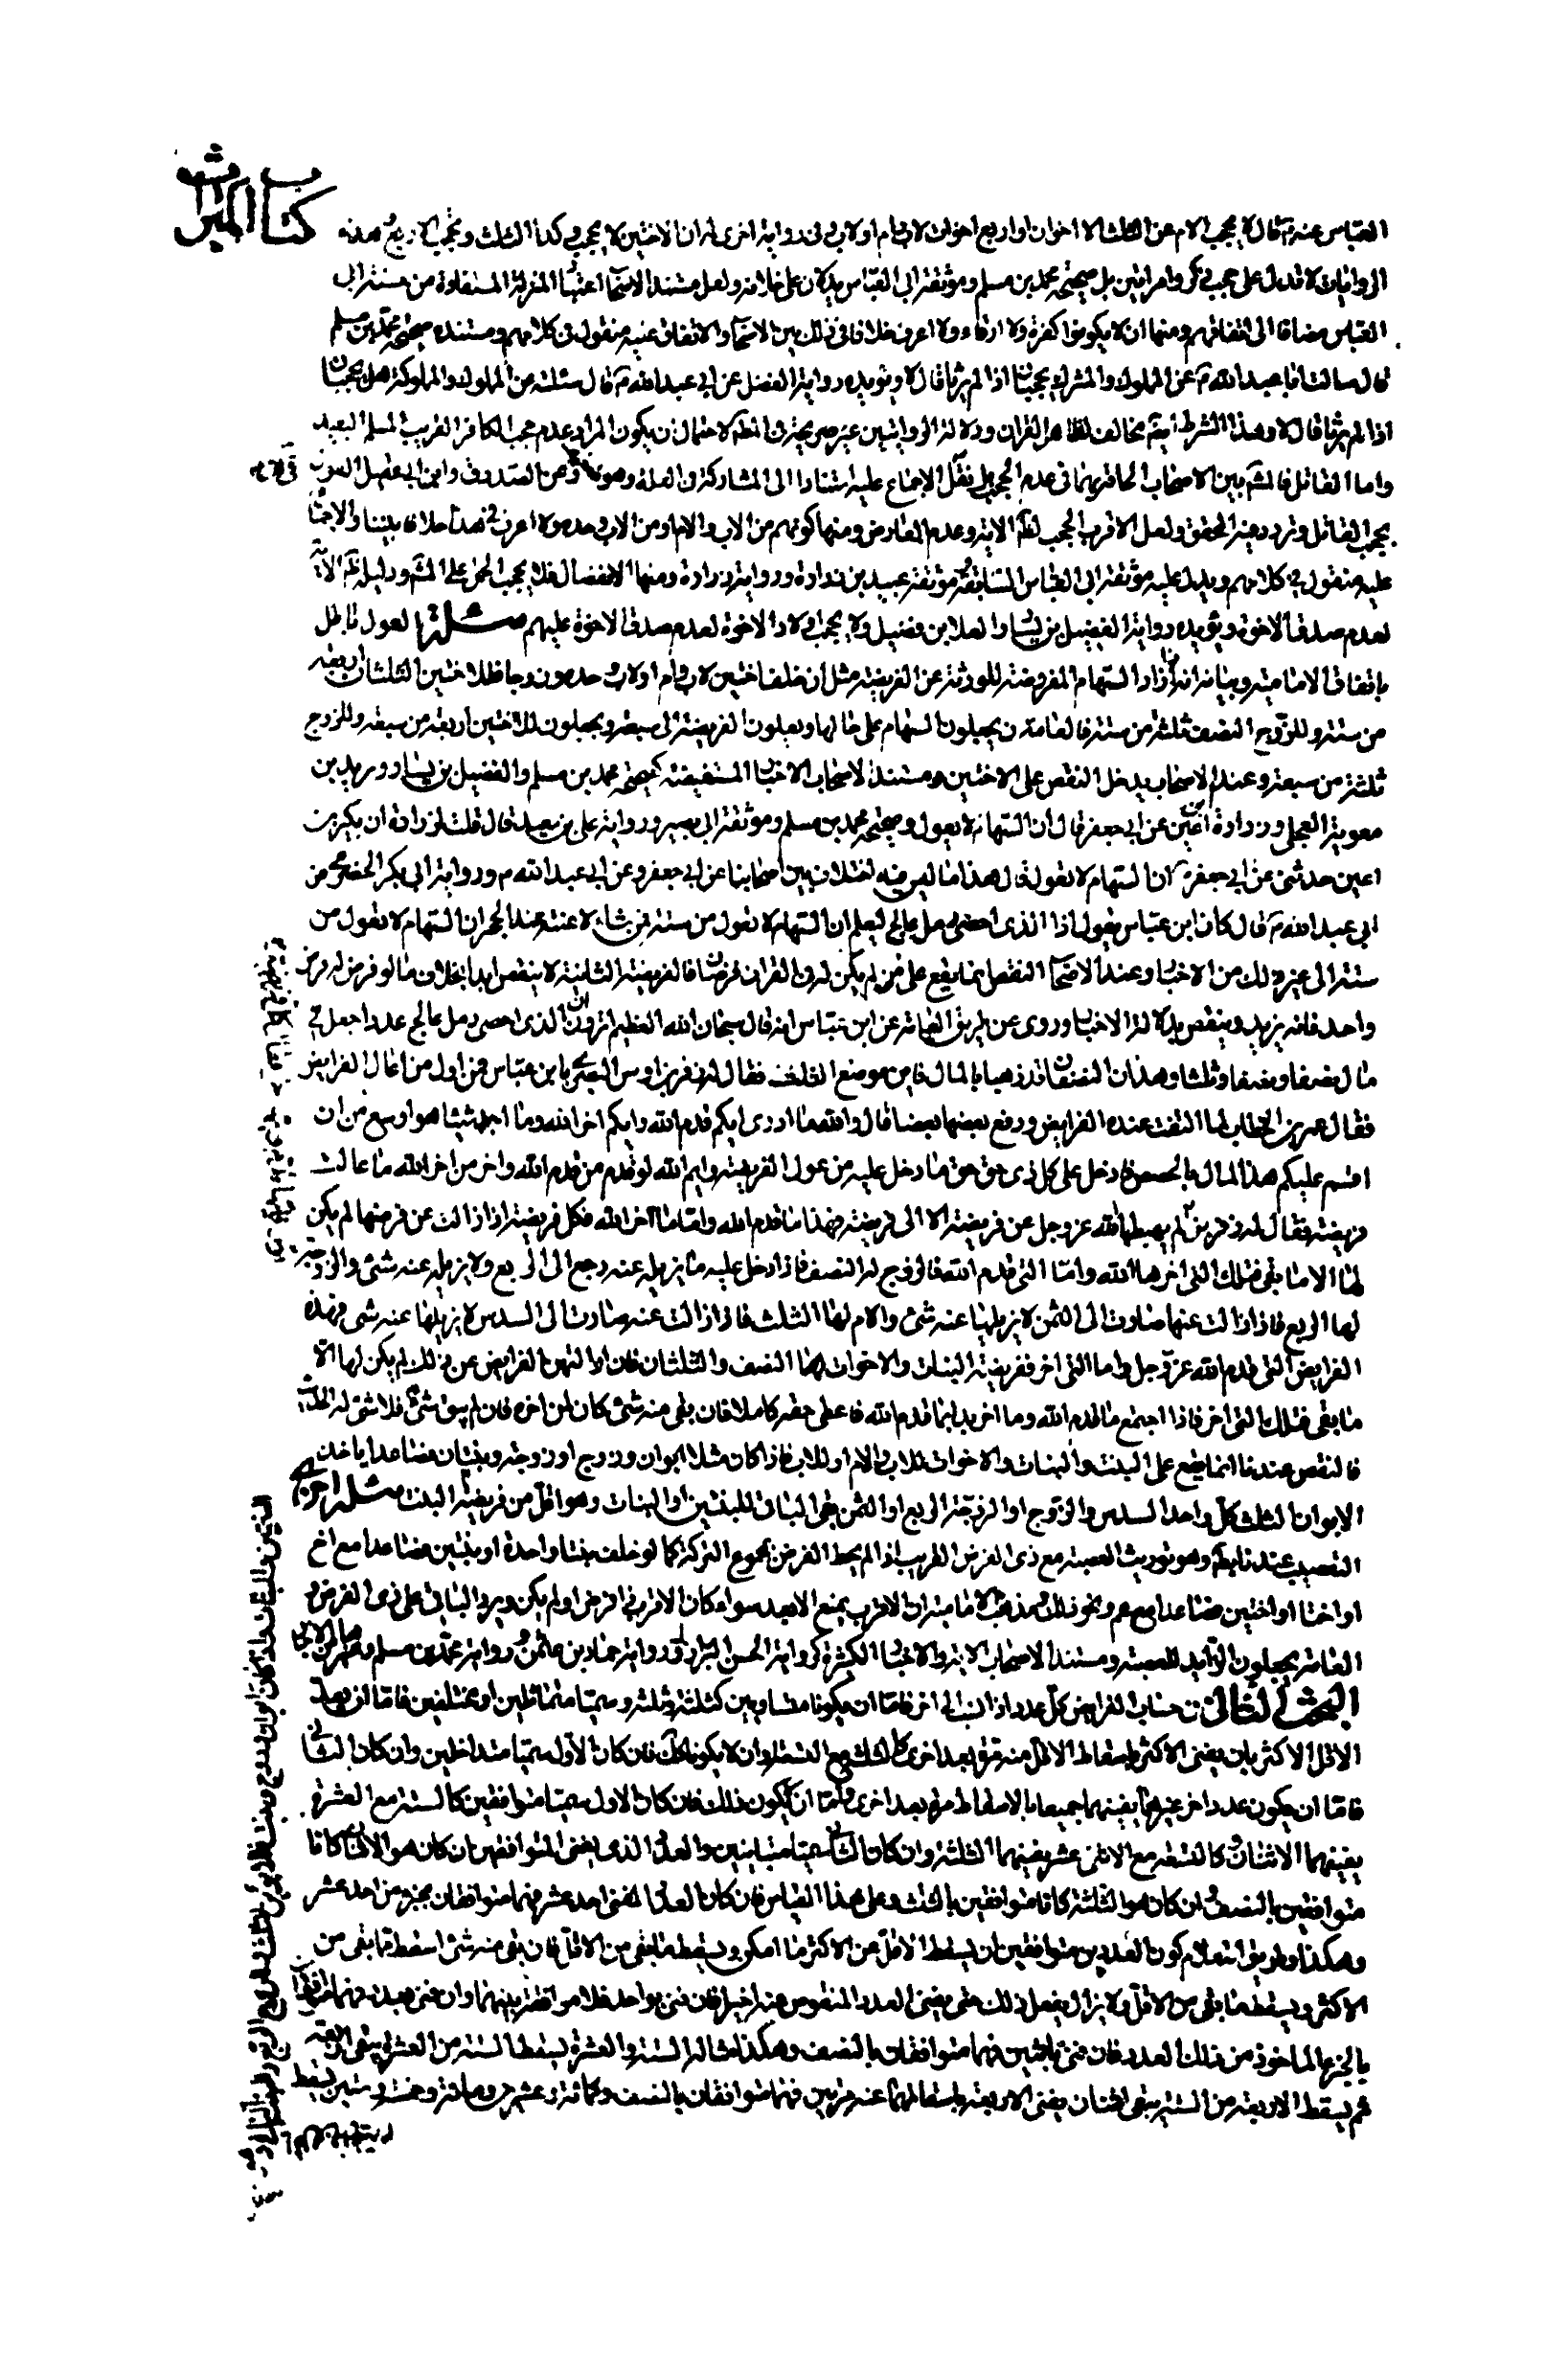 كتاب الميراث
العباس عنه ع قال لا يحجب الام عن الثلث الا اخوان او اربع اخوات لاب وام او لاب وفى رواية اخرى له ان الاختين لا يحجب كذا الثلث و يحجب الاربع هذه
الروايات لا تدل على حجب ذكر وامراتين بل صحيحة محمد بن مسلم وموثقة ابى العباس يدلان على خلافه ولعل مستند الاصحاب اعتبار المنزلة المستفادة من مستند ابى
العباس مضافا الى اتفاقهم ومنها ان لا يكونوا كفرة ولا ارقاء ولا اعرف خلافا فى ذلك بين الاصحاب والاتفاق عليه منقول فى كلامهم ومستنده صحيحة محمد بن مسلم
قال سالت ابا عبد الله ع عن المملوك والمشرك يحجبان اذا لم يرثا قال لا ويؤيده رواية الفضل عن ابى عبد الله ع قال سئلته عن المملوك والمملوكة هل يحجبان
اذا لم يرثا قال لا وهذا الشرط ايضا مخالف لظاهر القران ودلالة الروايتين غير صريحة فى المط لاحتمال ان يكون المراد عدم حجب الكافر القريب المسلم البعيد
واما القاتل فالمش بين الاصحاب الحاقه بهما فى عدم الحجب بل نقل الاجماع عليه استنادا الى المشاركة فى العلة وهو وعن الصدوق وابن ابى عقيل القول
بحجب القاتل وتردد فيه المحقق ولعل الاقرب الحجب لظ الاية وعدم المعارض ومنها كونهم من الاب والام او من الاب وحده ولا اعرف فى هذا خلافا بيننا والاجماع
عليه منقول فى كلامهم ويدل عليه موثقة ابى العباس السابقة وموثقة عبيد بن زرارة ورواية زرارة ومنها الانفصال فلا يحجب الحمل على المش ودليله ظ الاية
لعدم صدق الاخوة ويؤيده رواية الفضيل بن يسار والعلا بن فضيل ولا يحجب اولاد الاخوة لعدم صدق الاخوة عليهم مسئلة العول باطل
باتفاق الامامية وبيانه انه اذا زاد السهام المفروضة للورثة عن الفريضة مثل ان خلف اختين لاب وام او لاب وحده وزوجا فللاختين الثلثان اربعة
من ستة وللزوج النصف ثلثة من ستة فالعامة يجعلون السهام على حالها ويعولون الفريضة الى سبعة ويجعلون للاختين اربعة من سبعة وللزوج
ثلثة من سبعة وعند الاصحاب يدخل النقص على الاختين ومستند الاصحاب الاخبار المستفيضة كصحيحة محمد بن مسلم والفضيل بن يسار وبريد بن
معوية العجلى وزرارة بن اعين عن ابى جعفر ع قال ان السهام لا يعول وصحيحة محمد بن مسلم وموثقة ابى بصير ورواية على بن سعيد قال قلت لزرارة ان بكير بن
اعين حدثنى عن ابى جعفر ع ان السهام لا تعول قال هذا ما ليس فيه اختلاف بين اصحابنا عن ابى جعفر وعن ابى عبد الله ع ورواية ابى بكر الحضرمى عن
ابى عبد الله ع قال كان ابن عباس يقول اذا الذى احصى رمل عالج ليعلم ان السهام لا تعول من ستة فمن شاء لاعنته عند الحجر ان السهام لا تعول من
ستة الى غير ذلك من الاخبار وعند الاصحاب النقص انما يقع على من لم يكن له فى القران فرضان فالفريضة الثانية لا ينقص ابدا بخلاف ما لو فرض له فرض
واحد فانه يزيد وينقص بدلالة الاخبار وروى عن طريق العامة عن ابن عباس انه قال سبحان الله العظيم اترون ان الذى احصى رمل عالج عددا جعل فى
مال نصفا ونصفا وثلثا وهذان النصفان قد ذهبا بالمال فاين موضع الثلث فقال له زفر بن اوس البصرى يا بن عباس فمن اول من اعال الفرايض
فقال عمر بن الخطاب لما التفت عنده الفرايض ودفع بعضها بعضا قال والله ما ادرى ايكم قدم الله وايكم اخر الله وما اجد شيئا هو اوسع من ان
اقسم عليكم هذا المال بالحصص فادخل على كل ذى حق حق ما دخل عليه من عول الفريضة وايم الله لو قدم من قدم الله واخر من اخر الله ما عالت
فريضة فقال له زفر بن لم يهبطها الله عز وجل عن فريضة الا الى فريضة فهذا ما قدم الله واما ما اخر الله فكل فريضة اذا زالت عن فرضها لم يكن
لها الا ما بقى فتلك التى اخرها الله واما التى قدم الله فالزوج له النصف فاذا دخل عليه ما يزيله عنه رجع الى الربع ولا يزيله عنه شئ والزوجة
لها الربع فاذا زالت عنها صارت الى الثمن لا يزيلها عنه شئ والام لها الثلث فاذا زالت عنه صارت الى السدس لا يزيلها عنه شئ فهذه
الفرايض التى قدم الله عز وجل واما التى اخر ففريضة البنات والاخوات لها النصف والثلثان فان ازالتهن الفرايض عن ذلك لم يكن لها الا
ما بقى فتلك التى اخر فاذا اجتمع ما قدم الله وما اخر بدا بما قدم الله فاعطى حقه كاملا فان بقى منه شئ كان لمن اخره فان لم يبق شئ فلا شئ له
فالنقص عندنا انما يقع على البنت والبنات والاخوات للاب والام او للاب فاذا كان مثلا ابوان وزوج او زوجة وبنتان فصاعدا ياخذ
الابوان الثلث كل واحد السدس والزوج او الزوجة الربع او الثمن بقى الباقى للبنتين او البنات وهو اقل من فريضة البنت مسئلة اخرى
التعصيب عندنا باطل وهو توريث العصبة مع ذى الفرض القريب اذا لم يحط الفرض بمجموع التركة كما لو خلف بنتا واحدة او بنتين فصاعدا مع اخ
او اختا او اختين فصاعدا مع عم ونحو ذلك ومذهب الامامية ان الاقرب يمنع الابعد سواء كان الاقرب ذا فرض او لم يكن ويرد الباقى على ذى الفرض و
العامة يجعلون الزايد للعصبة ومستند الاصحاب الاية والاخبار الكثيرة كرواية الحسن البزاز ورواية حماد بن عثمن ورواية محمد بن مسلم وغيرها من الاخبار
البحث الثانى فى حساب الفرايض كل عدد اذا نسب الى اخر فاما ان يكونا متساويين كثلثة وثلثة وسميا متماثلين او مختلفين فاما ان يعد
الاقل الاكثر بان يفنى الاكثر باسقاط الاقل منه مرة بعد اخرى كالثلث مع التسعة وان لا يكونا كك فان كان الاول سميا متداخلين وان كان الثانى
فاما ان يكون عدد اخر غيرهما يفنيهما جميعا بالاسقاط مرة بعد اخرى واما ان لا يكون ذلك فان كان الاول سميا متوافقين كالستة مع العشرة
يفنيهما الاثنان وكالتسعة مع الاثنى عشر يفنيهما الثلثة وان كان الثانى سميا متباينين والعدد الذى يفنى المتوافقين ان كان هو الاثنان كانا
متوافقين بالنصف وان كان هو الثلثة كانا متوافقين بالثلث وعلى هذا القياس فان كان العدد المفنى احد عشر فهما متوافقان بجزء من احد عشر
وهكذا وطريق استعلام كون العددين متوافقين ان يسقط الاقل من الاكثر ما امكن ويسقط ما بقى من الاقل فان بقى منه شئ اسقط مما بقى من
الاكثر ويسقط ما بقى من الاقل ولا يزال يفعل ذلك حتى يفنى العدد المنقوص منه اخيرا فان فنى بواحد فلا موافقة بينهما وان فنى بعدد فهما متوافقان
بالجزء الماخوذ من ذلك العدد فان فنى باثنين فهما متوافقان بالنصف وهكذا مثاله الستة والعشرة يسقط الستة من العشرة يبقى اربعة
ثم يسقط الاربعة من الستة يبقى اثنان يفنى الاربعة باسقاطهما عنه مرتين فهما متوافقان بالنصف وكمائة وعشرين ومائة وخمسة وستين يسقط